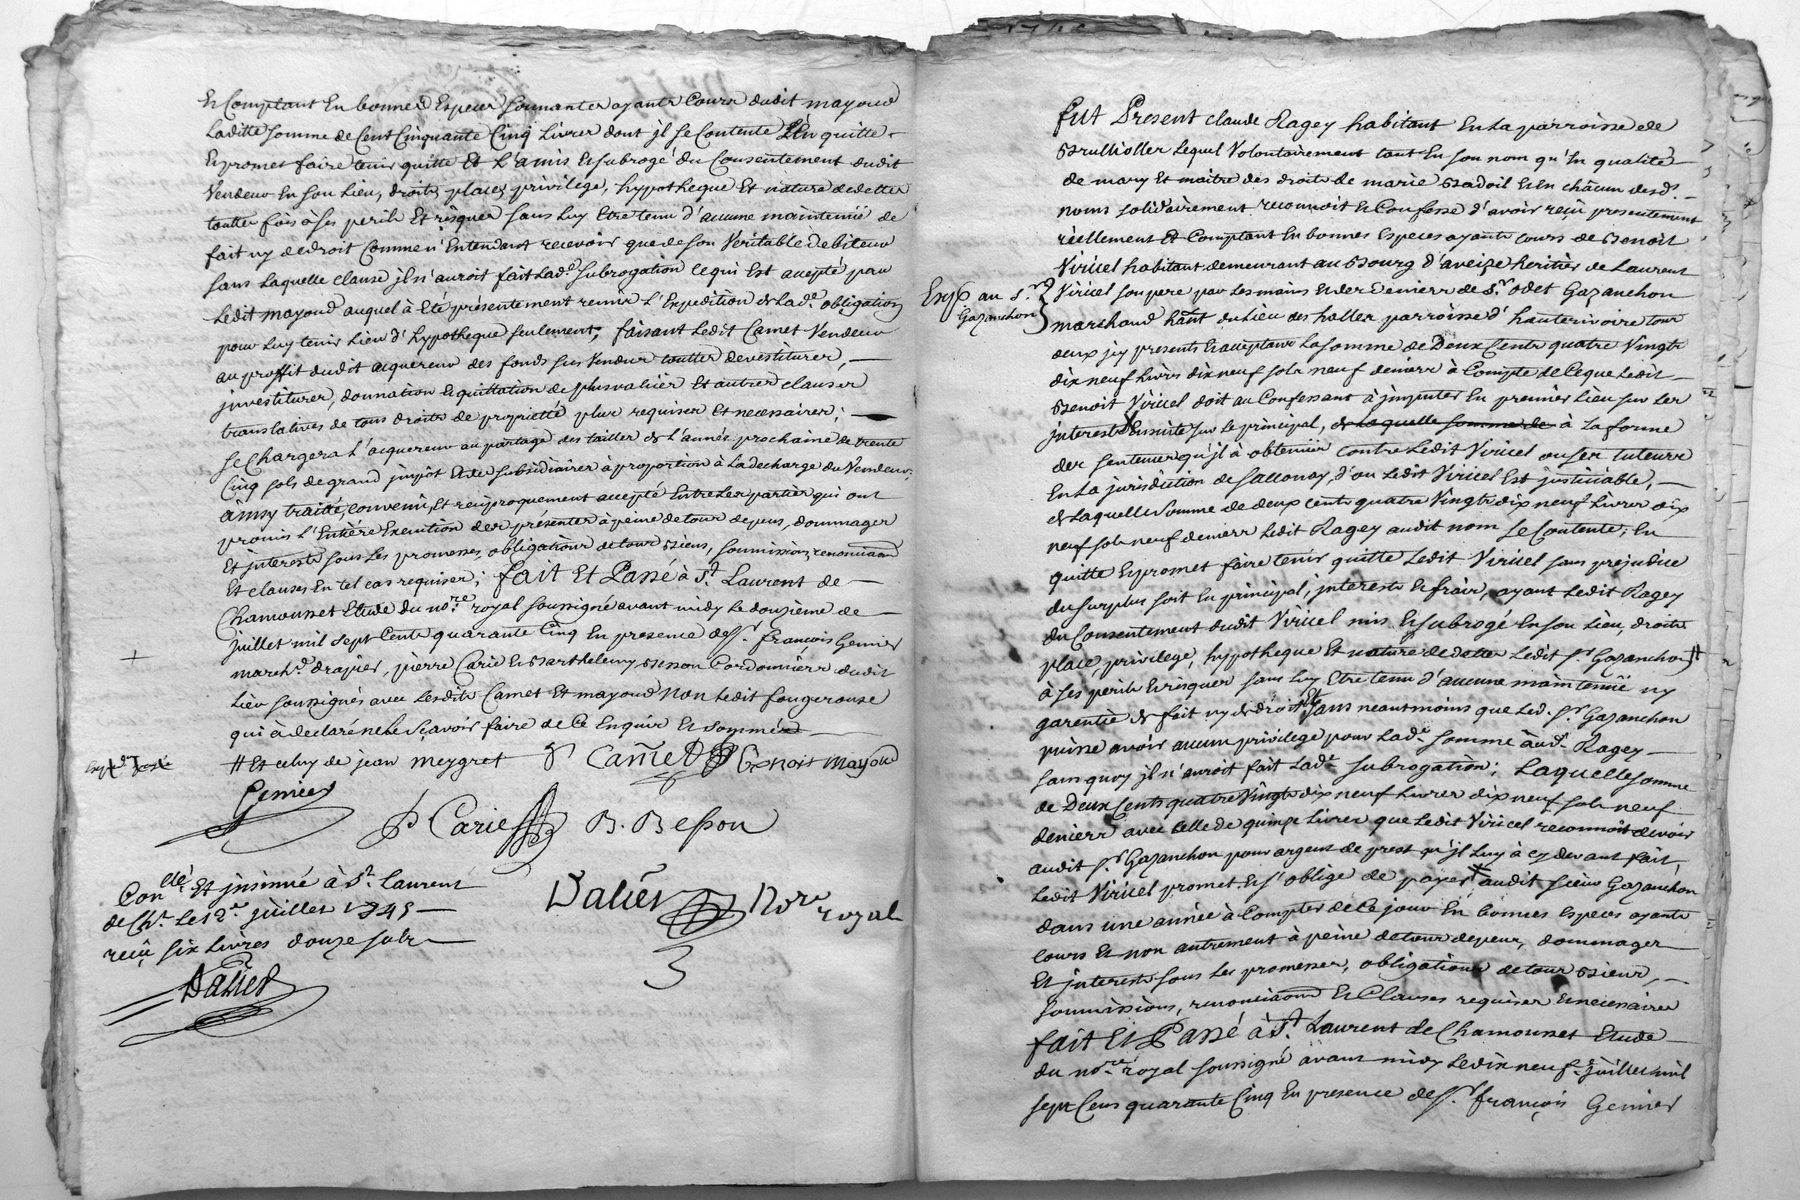 Et Comptant En bonnes Especes Sonnantes ayants Cours dudit mayoud
Laditte Somme de Cent Cinquante Cinq Livres dont jl Se Contente L'En quitte
Et promet faire tenir quitte Et L'a mis Et Subrogé du Consentement dudit
Vendeur En Son Lieu, droits, places, privilege, hypotheque Et nature de dette
touttes fois à Ses perils Et risques Sans Luy Etre tenu d'aucune maintenüe de
fait ny de droit Comme n'Entendant recevoir que de Son Veritable debiteur
Sans Laquelle clause jl n'auroit fait Lad.e Subrogation Ce qui Est accepté par
Ledit mayoud auquel à Eté présentement remis L'Expedition de Lad.e obligation
pour Luy tenir Lieu d'hypotheque Seulement; faisant Ledit Camet Vendeur
au proffit dudit acquereur des fonds Sus Vendus touttes devestitures,
jnvestitures, donnation Et quittation de plus valüe Et autres clauses
translatives de tous droits de proprietté plus requises Et necessaires;
Se Chargera L'acquereur au partage des tailles de L'année prochaine de trente
Cinq Sols de grand jmpôt Et des Subsidiaires à proportion à La decharge du Vendeur;
ainsy traitté, convenu, Et reciproquement accepté Entre Les parties qui ont
promis L'Entière Execution des présentes à peine de tous depens, dommages
Et jnterests Sous Les promesses, obligations de tous Biens, Soumissions, renonciaõns
Et clauses En tel cas requises; fait Et Passé à S.t Laurent de
Chamousset Etude du no.re royal Soussigné avant midy Le douzième de
juillet mil Sept Cents quarante Cinq En presence de S.r françois Genier
march.d drapier, pierre Carie Et Barthelemy Besson Cordonniers dudit
Lieu Soussignés avec Lesdits Camet Et mayoud Non Ledit fougerouse
qui à declaré ne le Sçavoir faire de Ce Enquis Et Sommé
# Et celuy de jean meygret P Camet Benoit mayoud
Genier
P Carie B. Besson
Con.llé Et jnsinué à S.t Laurent
de Ch.t Le 12.e juillet 1745
reçû Six Livres douze Sols
Dalier
Dalier Nore royal
3
fut Present claude Ragey habitant En La parroisse de
Brullioller Lequel Volontairement tant En Son nom qu'En qualité
de mary Et maitre des droits de marie Badoil Et En châcun desd.s
noms Solidairement reconnoit Et Confesse d'avoir reçû presentement
réellement Et Comptant En bonnes Especes ayants cours de Benoit
Viricel habitant demeurant au Bourg d'aveize heritier de Laurent
Exp. au S.r Gazanchon
Viricel Son pere par Les mains Et des deniers de S.r odet Gazanchon
marchand hañt du Lieu des halles parroisse d'hauterivoire tous
deux jcy presents Et acceptans La Somme de Deux Cents quatre Vingts
dix neuf Livres dix neuf Sols neuf deniers à Compte de Ce que Ledit
Benoit Viricel doit au Confessant à jmputer En premier Lieu Sur Les
jnterests Ensuite Sur Le principal, de Laquelle Somme de à La forme
des Sentences qu'jl à obtenües contre Ledit Viricel ou Ses tuteurs
En La jurisdiction de Sallonay, d'ou Ledit Viricel Est justiciable,
de Laquelle Somme de deux cents quatre Vingts dix neuf Livres dix
neuf Sols neuf deniers Ledit Ragey audit nom Se Contente, En
quitte Et promet faire tenir quitte Ledit Viricel Sans prejudice
du Surplus Soit En principal, jnterests Et frais, ayant Ledit Ragey
du Consentement dudit Viricel mis Et Subrogé En Son Lieu, droits
place, privilege, hypotheque Et nature de dettes Ledit S.r Gazanchon #
à Ses perils Et risques Sans Luy Etre tenu d'aucune maintenüe ny
garentie de fait ny de droit Et Sans neantmoins que Led. S.r Gazanchon
puisse avoir aucun privilege pour Lad.e Somme aud.t Ragey
Sans quoy jl n'auroit fait Lad.e Subrogation; Laquelle Somme
de Deux Cents quatre Vingts dix neuf Livres dix neuf Sols neuf
deniers avec Celle de quinze Livres que Ledit Viricel reconnoit devoir
audit S.r Gazanchon pour argent de prest qu'jl Luy à cy devant fait,
Ledit Viricel promet Et S'oblige de payer audit Sieur Gazanchon
dans une année à Compter de Ce jour En bonnes Especes ayants
cours Et non autrement à peine de tous depens, dommages
Et jnterests Sous Les promesses, obligations de tous Biens,
Soumissions, renonciaõns Et Clauses requises Et necessaires
fait Et Passé à S.t Laurent de Chamousset Etude
du no.re royal Soussigné avant midy Le dix neuf.e juillet mil
Sept Cens quarante Cinq En presence de S.r françois Genier